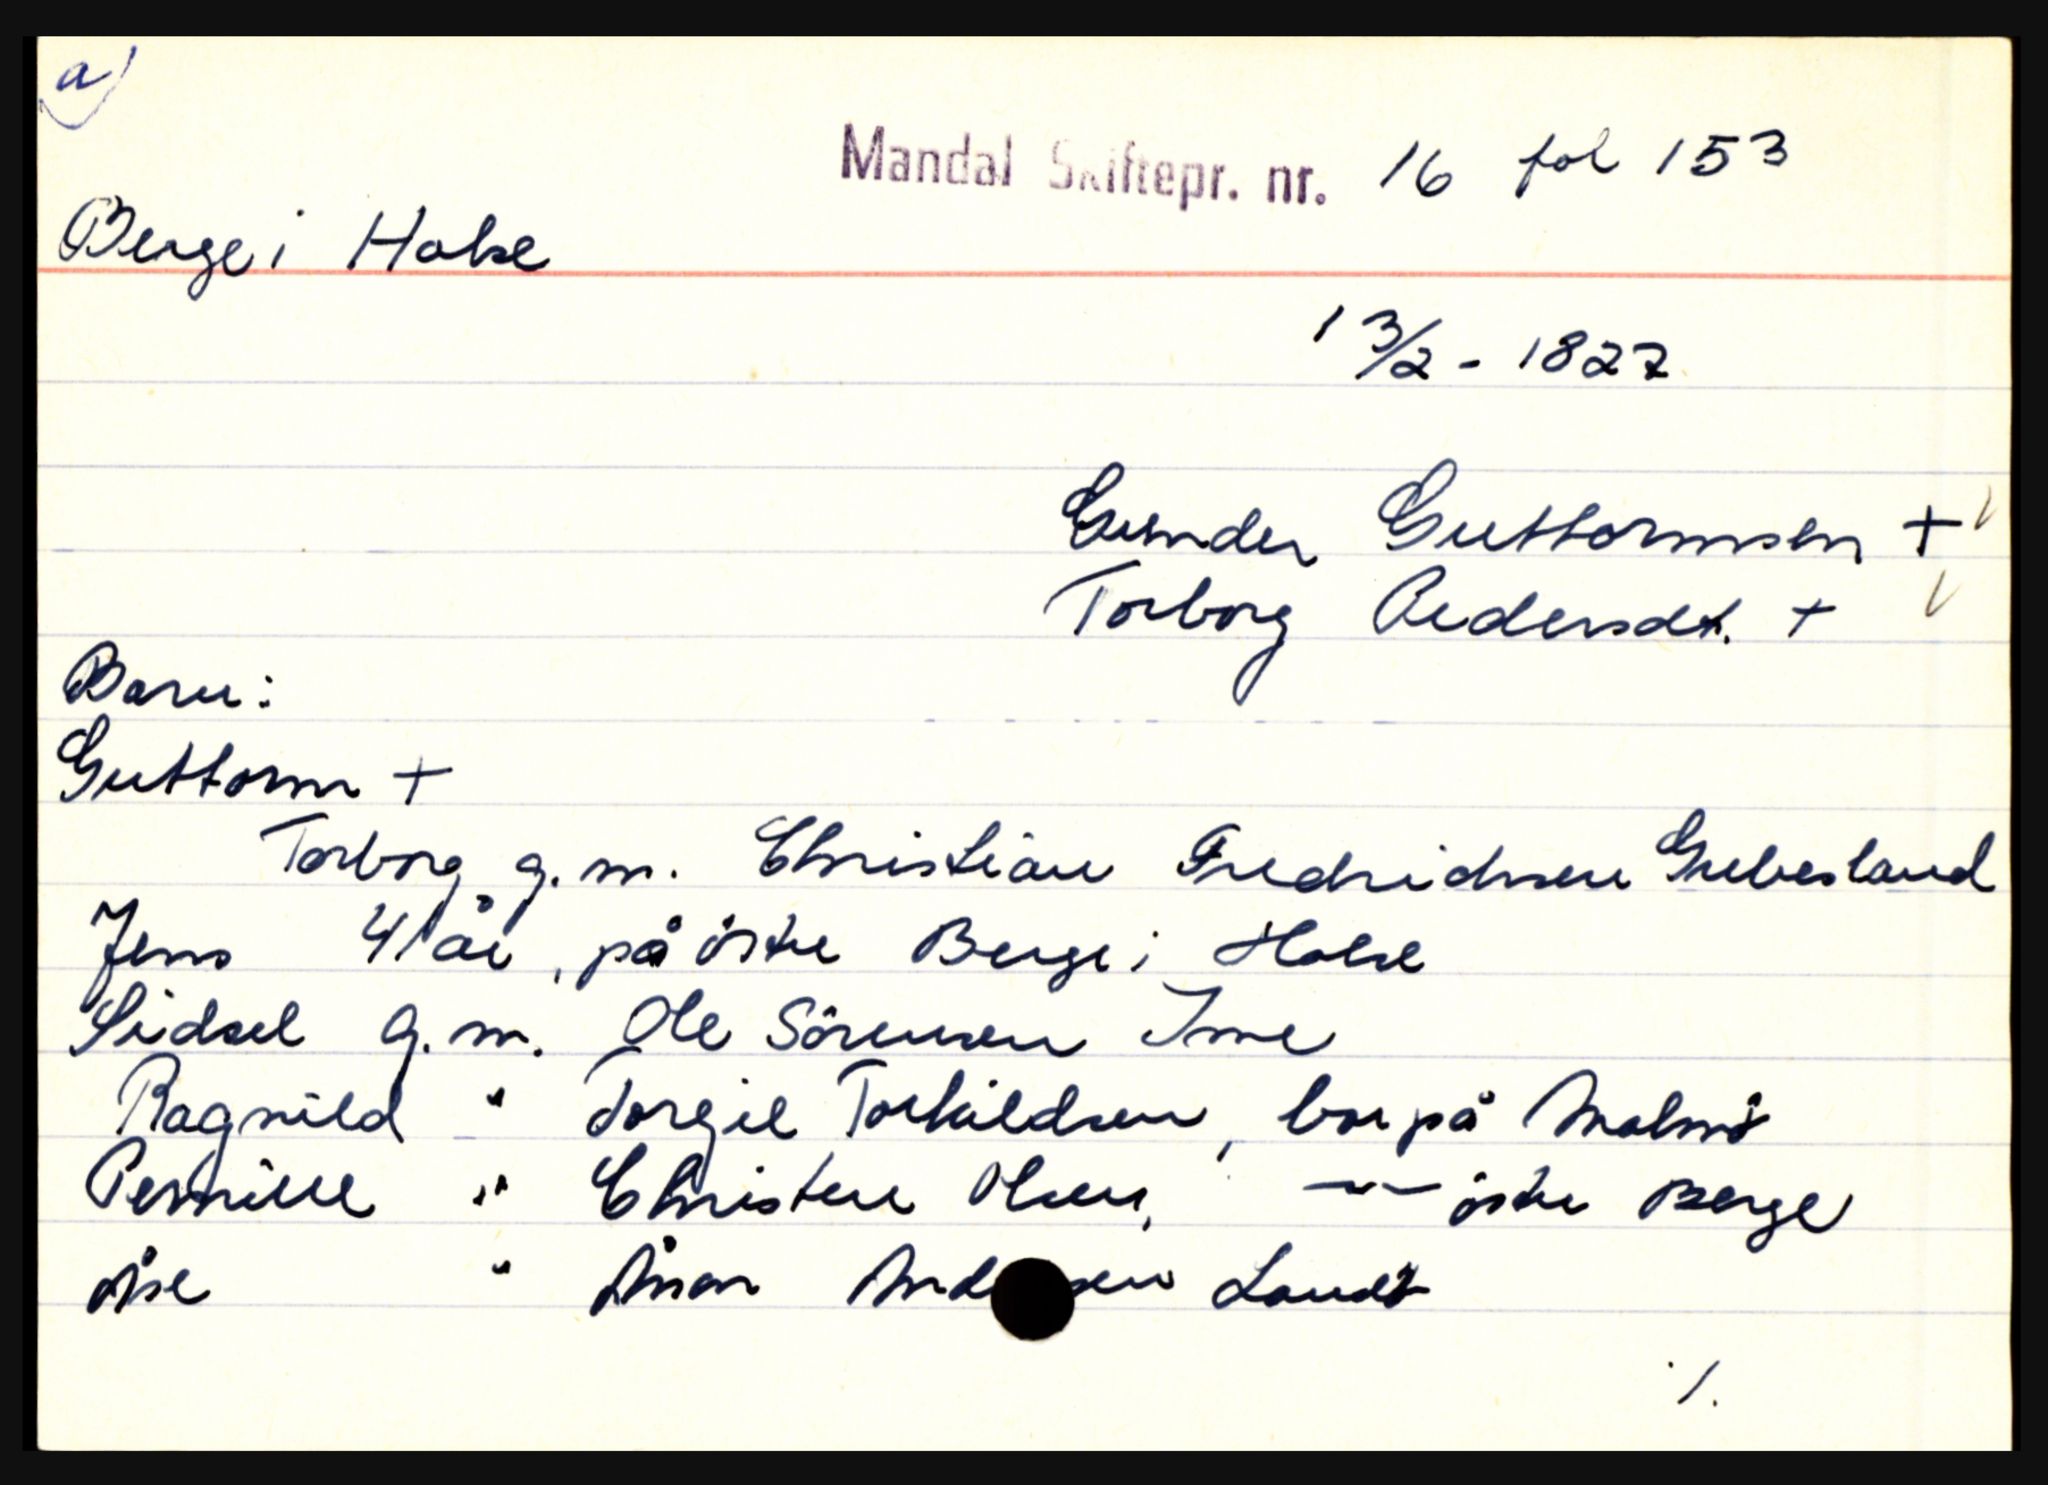 a)
Mandal Skiftepr. nr. 16 fol 153
Berge i Halse
13/2 - 1827
Gunder Guttormsen +
Torborg Pedersdt. +
Barn:
Guttorm +
Torborg g.m. Christian Fredrichsen Gubesland
Jens 41 år, på östre Berge i Halse
Sidsel g.m. Ole Sörensen Ime
Ragnild " Torgil Torkildsen, bor på Malmö
Pernille " Christen Olsen, — östre Berge
Åse " Ånon And sen Landö
./.